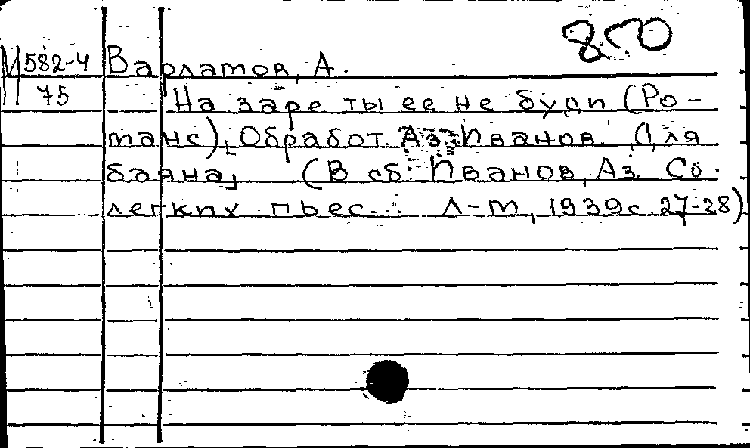 850
М582-4 Варламов, А.
75 На заре ты ее не буди (Ро-
манс), Обработ. Аз. Иванов. Для
баяна, (В сб: Иванов, Аз. Сб.
легких пьес... Л-М, 1939 с 27-28)